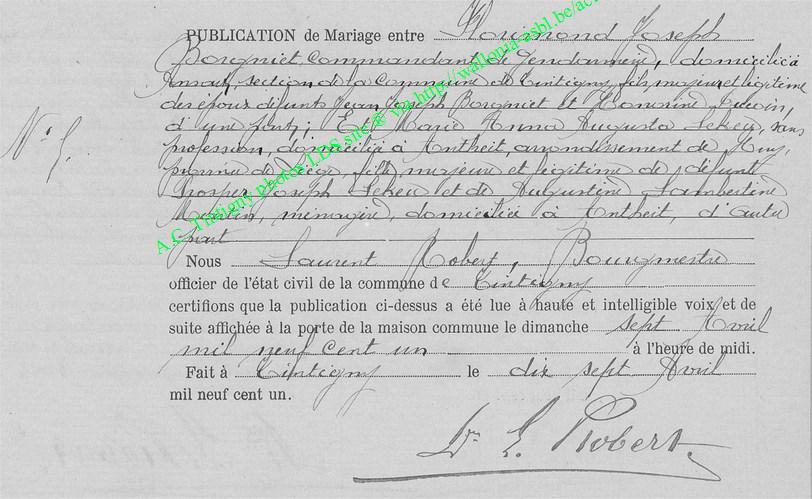 PUBLICATION de Mariage entre Florimond Joseph
Borgniet, Commandant de Gendarmerie, domicilié à
Ansart, section de la Commune de Tintigny, fils, majeur et légitime
des époux défunts Jean Joseph Borgniet et Honorine
d'une part; Et Marie Anna Augusta Lekeu, sans
profession, domiciliée à Antheit, arrondissement de Huy,
province de Liége, fille majeure et légitime de défunt
Prosper Joseph Lekeu et de Augustine Lambertine
ménagère, domiciliée à Antheit, d'autre
part
N° 5.
Nous Laurent Robert, Bourgmestre
officier de l'état civil de la commune de Tintigny
certifions que la publication ci-dessus a été lue à haute et intelligible voix et de
suite affichée à la porte de la maison commune le dimanche sept Avril
mil neuf cent un à l'heure de midi.
Fait à Tintigny le dix sept Avril
mil neuf cent un.
Dr L. Robert
A.C. Tintigny photos LDS site © via http://wallonia-asbl.be/ac